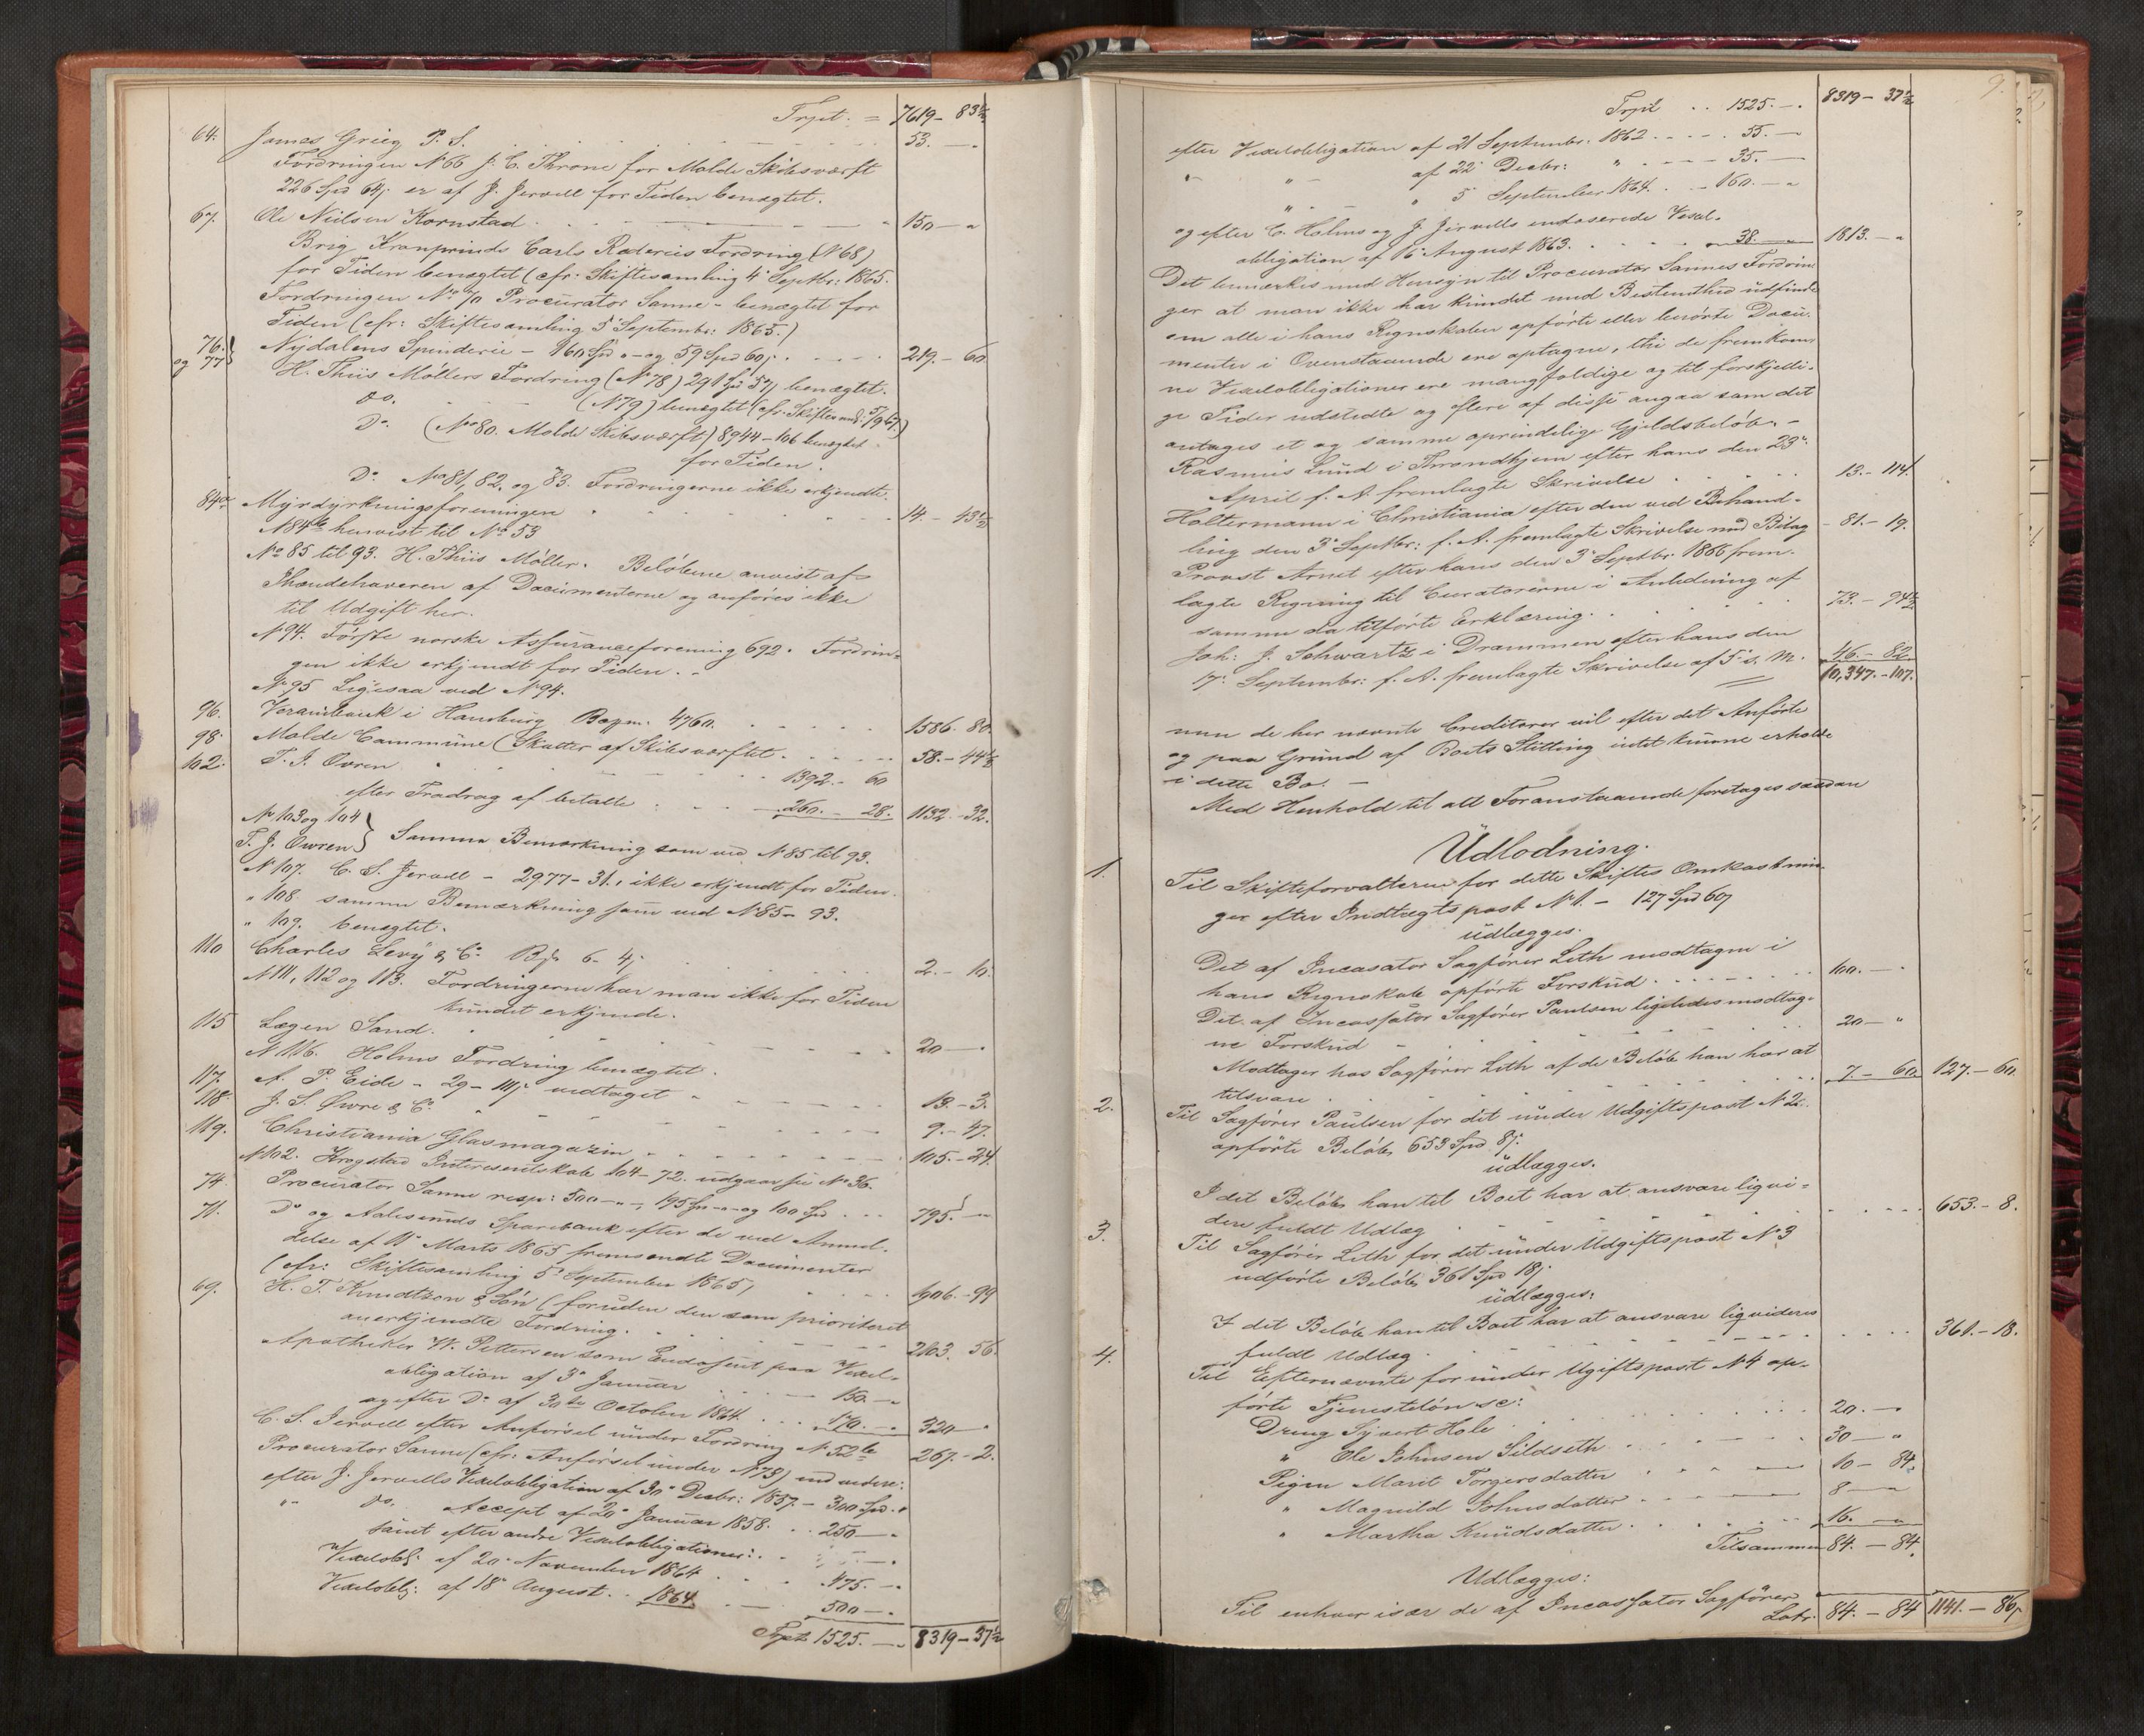 Trpt. = 7619 - 83½
64. James Grieg P. S. 53. -
Fordringen N 66 J. C. Throne for Molde Skibsværft
226 Spd 64 ß er af J. Jervell for Tiden benægtet.
67. Ole Nielsen Kornstad 150 - "
Brig Kronprinds Carls Rederies Fordring (N 68)
for Tiden benægtet (cfr: Skiftesamling 4' Septbr: 1865.
Fordringen No 70 Procurator Sanne - benægtet for
Tiden (cfr: Skiftesamling 5' Septembr: 1865.)
76. og 77 } Nydalens Spinderie - 160 Spd " - og 59 Spd 60 ß. 219. - 60
H. Thiis Møllers Fordring (N 78) 291 Spd 57 ß benægtet.
do. (N 79) benægtet (cfr. Skiftesaml: 5/9 67)
Do. (No 80. Molde Skibsværft) 8944 - 106 benægtet
for Tiden.
Do No 81, 82, og 83. Fordringerne ikke erkjendte.
84a Myrdyrkningsforeningen 14. - 43½
N 84b henvist til No 53
No 85 til 93. H. Thiis Møller. Beløbene anvist af
Ihændehaveren af Documenterne og anføres ikke
til Udgift her.
N 94. Første norske Assuranceforening 692. Fordrin-
gen ikke erkjendt for Tiden. -
N 95 Ligesaa ved N 94.
96. Vereinsbank i Hamburg Bcopm. 4760. 1586. 80.
98. Molde Commune (Skatter af Skibsværftet. 58. - 44½
102. T. J. Owren 1392. - 60
efter Fradrag af betalte 260. - 28. 1132. - 32.
N 103 og 104
T. J. Owren } Samme Bemærkning som ved N 85 til 93.
N 107. C. S. Jervell - 2977 - 31. ikke erkjendt for Tiden.
" 108 samme Bemærkning som ved N 85 - 93.
" 109. benægtet.
110 Charles Levy & Co. 6 - 4 ß 2. - 10.
N 111, 112 og 113. Fordringerne har man ikke for Tiden
kundet erkjende.
115 Lægen Sand. 20 - "
N 116. Holms Fordring benægtet.
117. A. P. Eide - 29 - 111 ß vedtaget 13. - 3.
118. J. S. Øwre & Co. 9. - 47.
119. Christiania Glasmagazin 105. - 24.
N 102. Krogstad Interesentskab 104 - 72. udgaar see No 36.
74. Procurator Sanne resp: 500 - " -, 195 Spd - " - og 100 Spd 795. - "
71. Do og Aalesunds Sparebank efter de ved Anmel-
delse af 11' Marts 1865 fremsendte Documenter
(cfr: Skiftesamling 5' September 1865) 1906. - 99
69. H. T. Knudtzon & Søn (foruden den som prioriteret
anerkjendte Fordring. 2163. 56.
Apotheker W. Pettersen som Endosent paa Vexel-
obligation af 3' Januar 150. - "
og efter Do af 30te October 1864 170. - " 320 - "
C. S. Jervell efter Anførsel under Fordring N. 52b 267. - 2.
Procurator Sanne (cfr: Anførsel under N 73) end videre:
efter J. Jervells Vexelobligation af 30' Decbr: 1857. - 300 Spd. "
" do. Accept af 20' Januar 1858. 250 - "
samt efter andre Vexelobligationer:
Vexelobl: af 20' November 1864 475. - "
Vexelobl: af 18' August. 1864. 500 - "
Trpt 1525. - " 8319 - 37½
9.
Trpt 1525. - " 8319 - 37½
efter Vexelobligation af 21 Septembr: 1862 55. -
" " af 22' Decbr: " 35. -
" " " 5' September 1864. 160. - "
og efter C. Holms og J. Jervells endoserede Vexel-
obligation af 16' August 1863. 38. - " 1813. - "
Det bemærkes med Hensyn til Procurator Sannes Fordrin-
ger at man ikke har kundet med Bestemthed udfinde
om alle i hans Regnskaber opførte eller berørte Docu-
menter i Ovenstaaende ere optagne, thi de fremkom-
ne Vexelobligationer ere mangfoldige og til forskjelli-
ge Tider udstedte og eftere af disse angaa som det
antages et og samme oprindelige Gjeldsbeløb. -
Rasmus Lund i Throndhjem efter hans den 23'
April f. A. fremlagte Skrivelse 13. - 114.
Holtermann i Christiania efter den ved Behand-
ling den 3' Septbr: f. A. fremlagte Skrivelse med Bilag 81. - 19.
Provst Arnet efter hans den 3' Septbr. 1866 frem-
lagte Regning til Curatorerne i Anledning af
samme da tilførte Erklæring. 73. - 94½
Joh: J. Schwartz i Drammen efter hans den
17' Septembr: f. A. fremlagte Skrivelse af 5' s. M. 46. - 82.
10,347. - 107.
men de her nævnte Creditorer vil efter det Anførte
og paa Grund af Boets Stilling intet kunne erholde
i dette Bo. -
Med Henhold til alt Foranstaaende foretages saadan
Udlodning.
1. Til Skifteforvalteren for dette Skiftes Omkostnin-
ger efter Indtægtspost N 1. - 127 Spd 60 ß
udlægges.
Det af Incasator Sagfører Leth modtagne i
hans Regnskab opførte Forskud 100. - "
Det af Incassator Sagfører Paulsen ligeledes modtag-
ne Forskud 20 - "
Modtages hos Sagfører Leth af de Beløb han har at
tilsvare 7. - 60. 127. - 60.
2. Til Sagfører Paulsen for det under Udgiftspost N 2.
opførte Beløb 653 Spd 8 ß.
udlægges.
I det Beløb han til Boet har at ansvare liqvi-
dere fuldt Udlæg 653. - 8.
3. Til Sagfører Leth for det under Udgiftspost N 3
udførte Beløb 361 Spd 18 ß
udlægges:
I det Beløb han til Boet har at ansvare liqvideres
fuldt Udlæg 361. - 18.
4. Til Efternævnte for under Ugiftspost N 4 op-
førte Tjenesteløn sc:
Dreng Syvert Hole 20. - "
" Ole Johnsen Sildseth 30 - "
Pigen Marit Torgersdatter 10 - 84.
" Magnild Johnsdatter 8 - "
" Martha Knudsdatter 16. - "
Tilsammen 84. - 84.
Udlægges:
Til enhver især de af Incassator Sagfører
Latr. 84. - 84 1141. - 86 ß